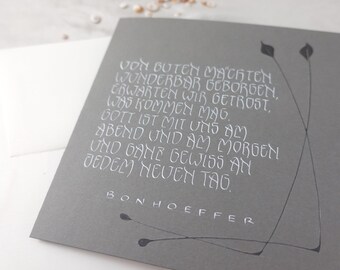 VON GUTEN MÄCHTEN
WUNDERBAR GEBORGEN,
ERWARTEN WIR GETROST,
WAS KOMMEN MAG.
GOTT IST MIT UNS AM
ABEND UND AM MORGEN
UND GANZ GEWISS AN
JEDEM NEUEN TAG.
BONHOEFFER